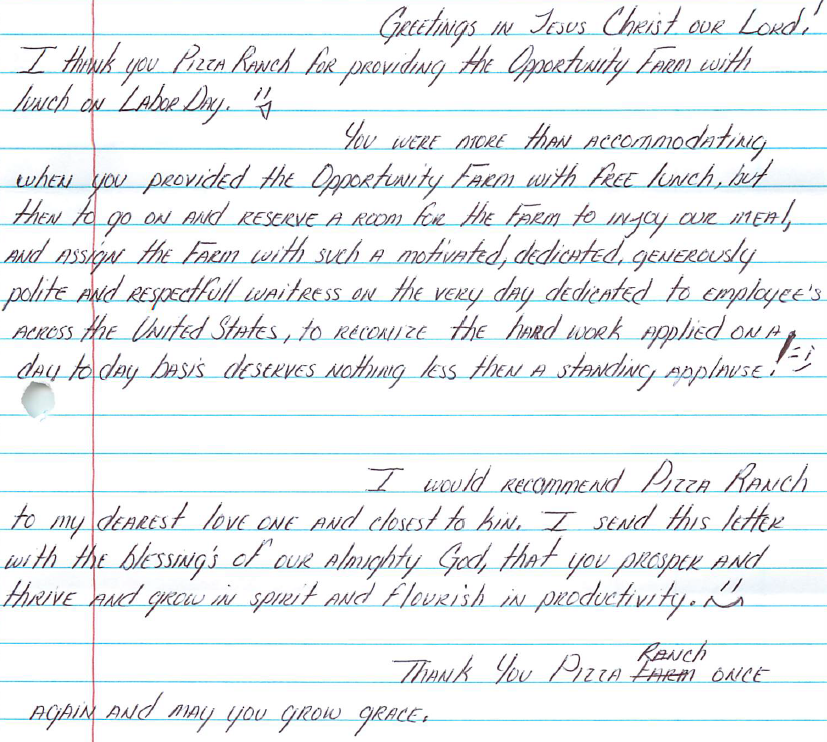 Greetings in Jesus Christ our Lord!
I thank you Pizza Ranch for providing the Opportunity Farm with
lunch on Labor Day.
You were more than accommodating
when you provided the Opportunity Farm with free lunch, but
then to go on and reserve a room for the Farm to injoy our meal,
and assign the Farm with such a motivated, dedicated, generously
polite and respectfull waitress on the very day dedicated to employee's
across the United States, to reconize the hard work applied on a
day to day basis deserves nothing less then a standing applause! =)
I would recommend Pizza Ranch
to my dearest love one and closest to kin. I send this letter
with the blessing's of our Almighty God, that you prosper and
thrive and grow in spirit and flourish in productivity.
Ranch
Thank You Pizza Farm once
again and may you grow grace.